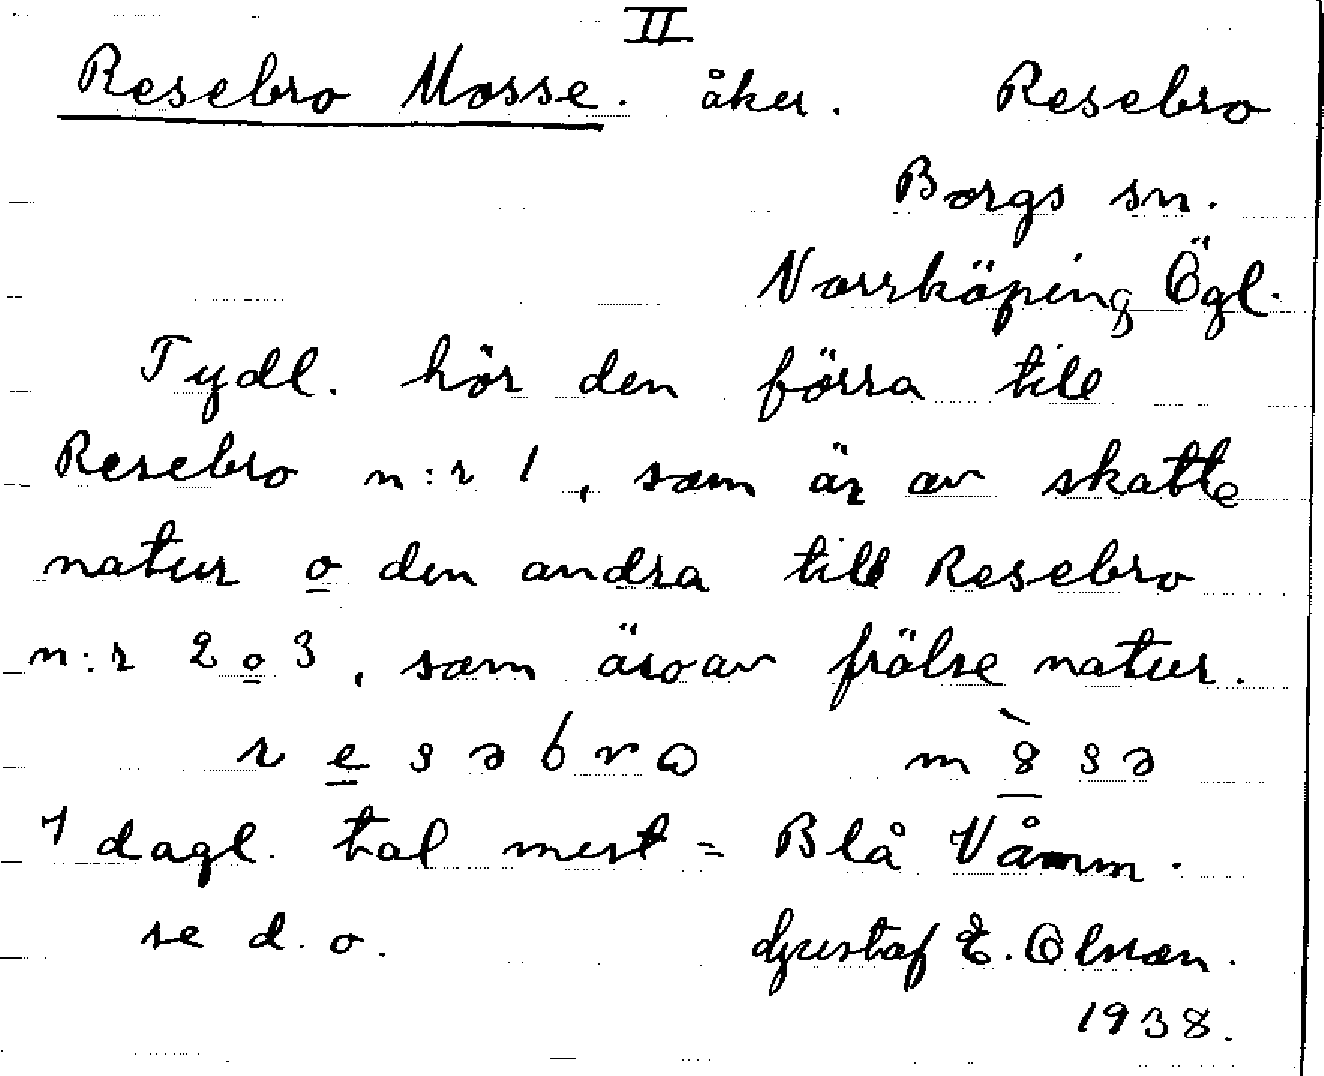 II
Resebro Mosse. åker. Resebro
Borgs sn.
Norrköping Ögl.
Tydl. hör den förra till
Resebro n:r 1, som är av skatte
natur o den andra till Resebro
n:r 2 o 3, som äro av frälse natur.
r e s ə b r ω m 8̀ s ə
I dagl. tal mest = Blå Våmm.
se d. o. Gustaf E. Olsson.
1938.